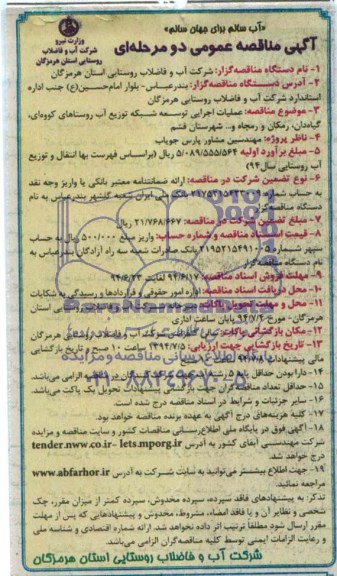 «آب سالم برای جهان سالم»
آگهی مناقصه عمومی دو مرحله‌ای
وزارت نیرو
شرکت آب و فاضلاب
روستایی استان هرمزگان
۱- نام دستگاه مناقصه‌گزار: شرکت آب و فاضلاب روستایی استان هرمزگان
۲- آدرس دستگاه مناقصه‌گزار: بندرعباس- بلوار امام‌حسین(ع) جنب اداره
استاندارد شرکت آب و فاضلاب روستایی هرمزگان
۳- موضوع مناقصه: عملیات اجرایی توسعه شبکه توزیع آب روستاهای کووه‌ای،
گیاه‌دان، رمکان و رمچاه و.. شهرستان قشم
۴- ناظر پروژه: مهندسین مشاور پارس جویاب
۵- مبلغ برآورد اولیه ۵/۰۸۹/۵۵۵/۵۶۴ ریال (براساس فهرست بها انتقال و توزیع
آب روستایی سال۹۴)
۶- نوع تضمین شرکت در مناقصه: ارائه ضمانتنامه معتبر بانکی یا واریز وجه نقد
به حساب شماره بانک ملی ایران شعبه گلشهر بندرعباس به نام
دستگاه مناقصه‌گزار
۷- مبلغ تضمین شرکت در مناقصه: ریال
۸- قیمت اسناد مناقصه و شماره حساب: واریز مبلغ ۵۰۰/۰۰۰ ریال به حساب
سپهر شماره بانک صادرات شعبه سه راه آزادگان بندرعباس به
نام دستگاه مناقصه‌گزار
۹- مهلت فروش اسناد مناقصه:
۱۰- محل دریافت اسناد مناقصه: اداره امور حقوقی و قراردادها و رسیدگی به شکایات
۱۱- محل و مهلت تحویل پاکات: روستایی استان
هرمزگان- مورخ پایان ساعت اداری
۱۲- مکان بازگشایی پاکات: سالن کنفرانس شرکت آب و فاضلاب روستایی هرمزگان
۱۳- تاریخ بازگشایی جهت ارزیابی: ۱۳۹۴/۷/۵ ساعت ۱۰ صبح و تاریخ بازگشایی
مالی پیشنهادات
۱۴- دارا بودن حداقل پایه ۵ رشته الزامی می‌باشد.
۱۵- حداقل تعداد مناقصه‌گران جهت بازگشایی پیشنهادات تحویل یک پاکت می‌باشد.
۱۶- سایر جزئیات و شرایط در اسناد مناقصه درج شده است.
۱۷- کلیه هزینه‌های درج آگهی به عهده برنده مناقصه خواهد بود.
۱۸- آگهی فوق در پایگاه ملی اطلاع‌رسانی مناقصات کشور و سایت مناقصه و مزایده
شرکت مهندسی آبفای کشور به آدرس tender.nww.co.ir- iets.mporg.ir
درج خواهد شد.
۱۹- جهت اطلاع بیشتر می‌توانید به سایت شرکت به آدرس www.abfarhor.ir
مراجعه نمائید.
تذکر: به پیشنهادهای فاقد سپرده، سپرده مخدوش، سپرده کمتر از میزان مقرر، چک
شخصی و نظایر آن و یا فاقد امضاء، مشروط، مخدوش و پیشنهادهایی که پس از مهلت
مقرر ارسال شود مطلقاً ترتیب اثر داده نخواهد شد. ارائه شماره اقتصادی و شناسه ملی
و رعایت الزامات ایمنی توسط کلیه مناقصه‌گران الزامی می‌باشد.
شرکت آب و فاضلاب روستایی استان هرمزگان